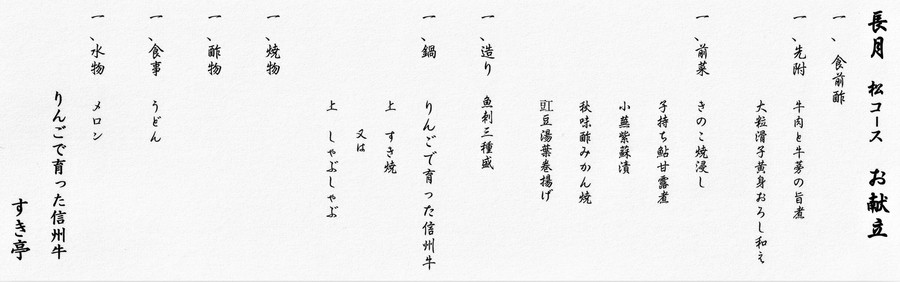 長月 松コース お献立
一、食前酢
一、先附 牛肉と牛蒡の旨煮
大粒滑子黄身おろし和え
一、前菜 きのこ焼浸し
子持ち鮎甘露煮
小蕪紫蘇漬
秋味酢みかん焼
豇豆湯葉巻揚げ
一、造り 魚刺三種盛
一、鍋 りんごで育った信州牛
上 すき焼
又は
上 しゃぶしゃぶ
一、焼物
一、酢物
一、食事 うどん
一、水物 メロン
りんごで育った信州牛
すき亭